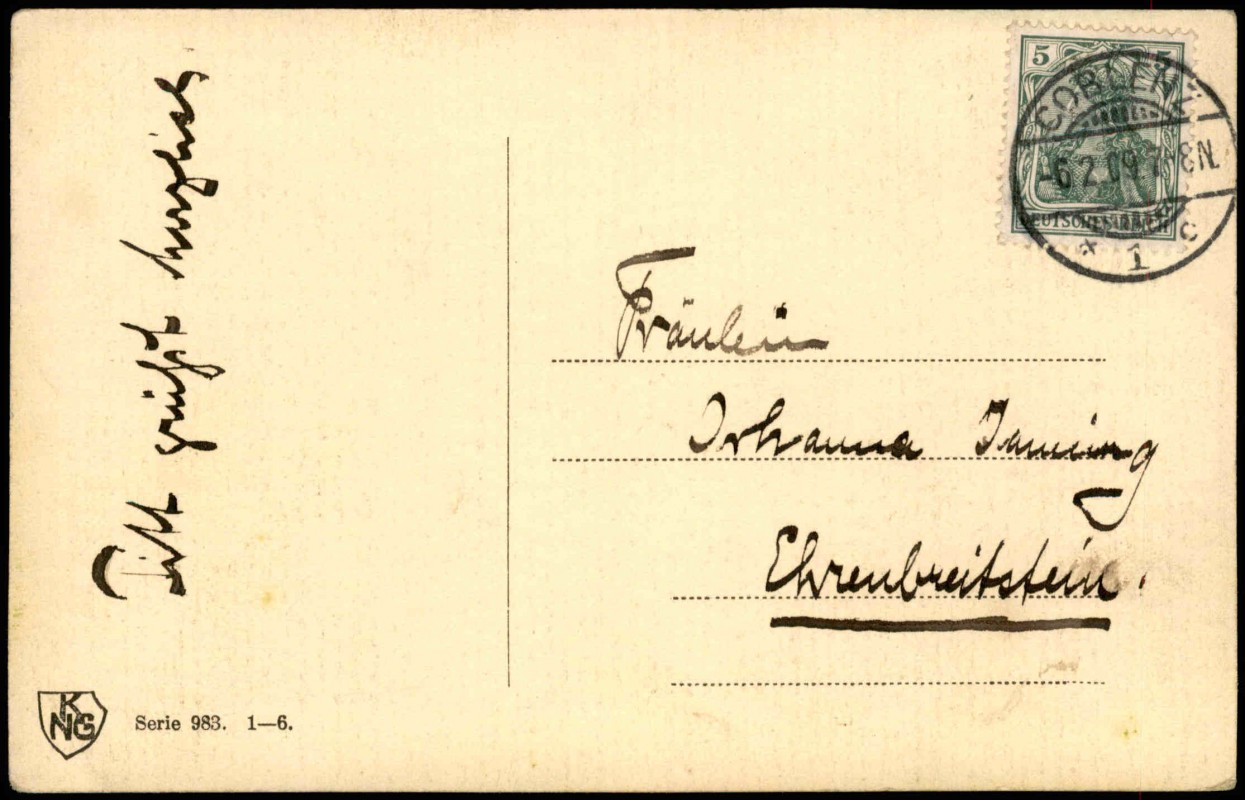 grüßt herzlich
Fräulein
Johanna
Ehrenbreitstein.
5 5
COBLENZ
-6.2.09.7-8N.
* 1 c
DEUTSCHES REICH
KNG
Serie 983. 1—6.